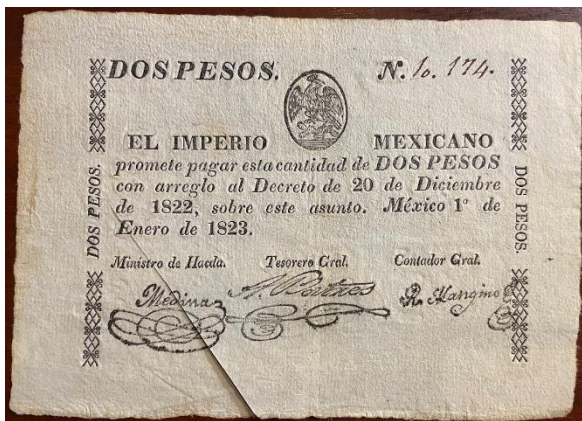 DOS PESOS. N. 10. 174.
EL IMPERIO MEXICANO
promete pagar esta cantidad de DOS PESOS
con arreglo al Decreto de 20 de Diciembre
de 1822, sobre este asunto. México 1º de
Enero de 1823.
Ministro de Hacda. Tesorero Gral. Contador Gral.
Medina A. Batres R. Mangino
DOS PESOS.
DOS PESOS.